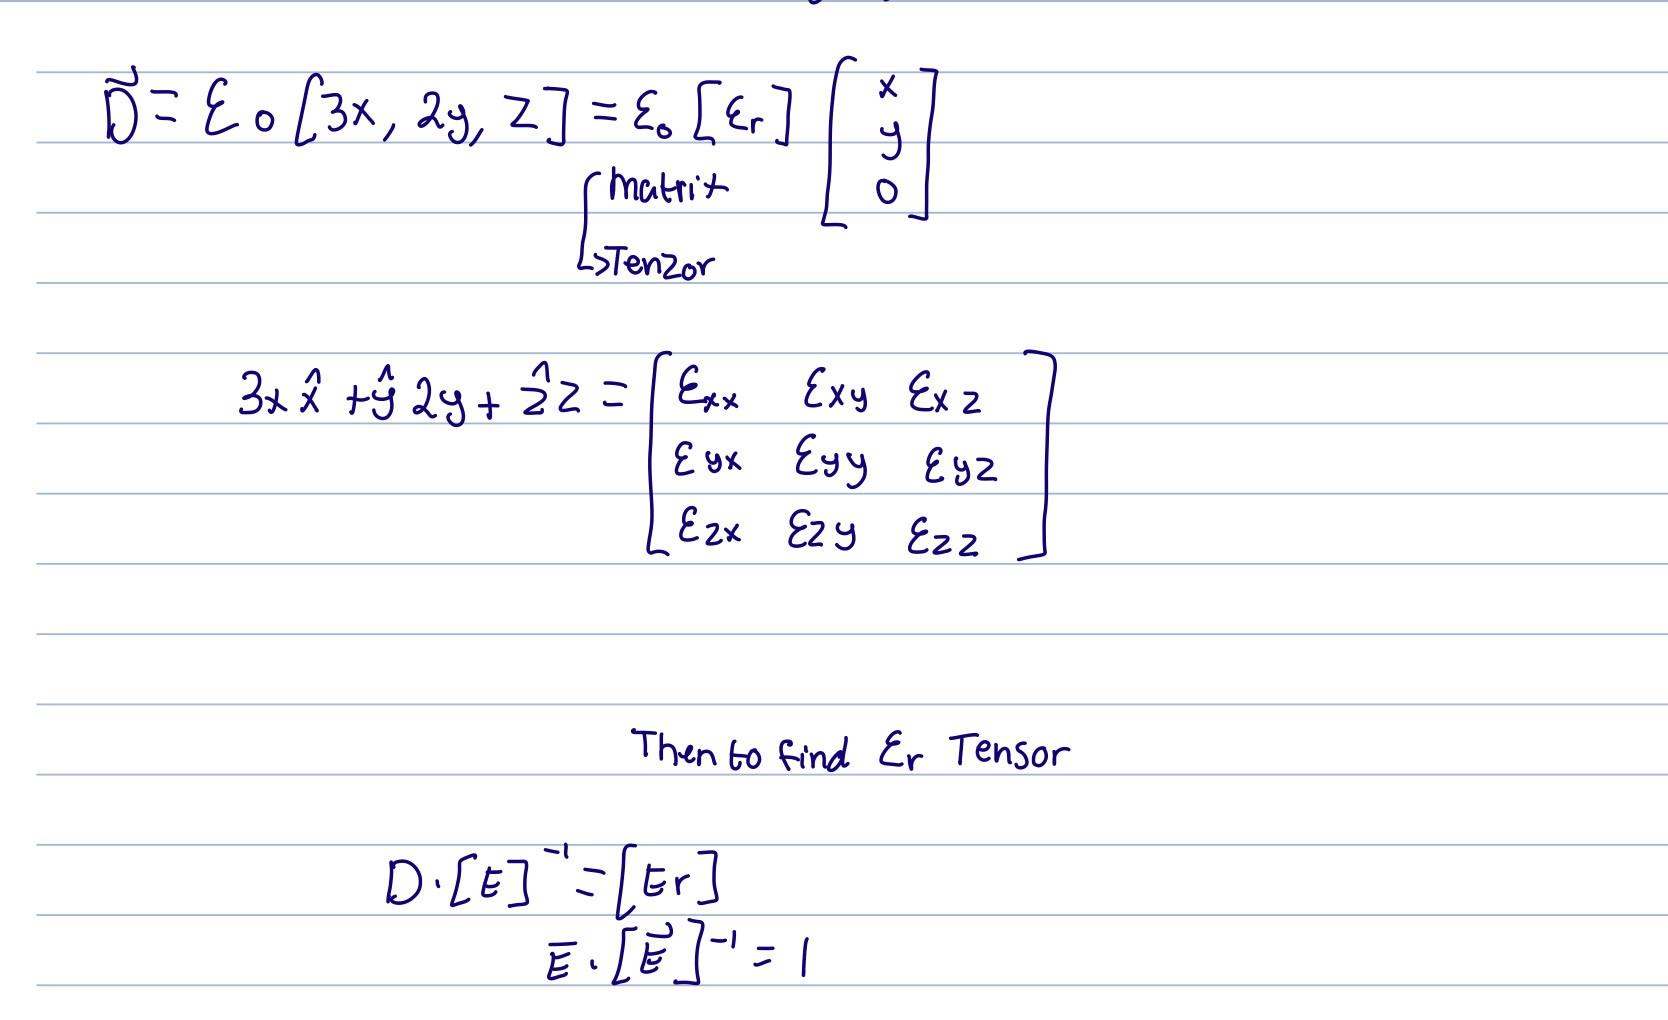 D⃗ = ε₀ [3x, 2y, z] = ε₀ [εr] [x y 0]
Matrix
↳Tenzor
3x x̂ + ŷ 2y + ẑ z = [εxx εxy εxz
εyx εyy εyz
εzx εzy εzz]
Then to find εr Tensor
D·[E]⁻¹ = [Er]
E̅·[E⃗]⁻¹ = 1